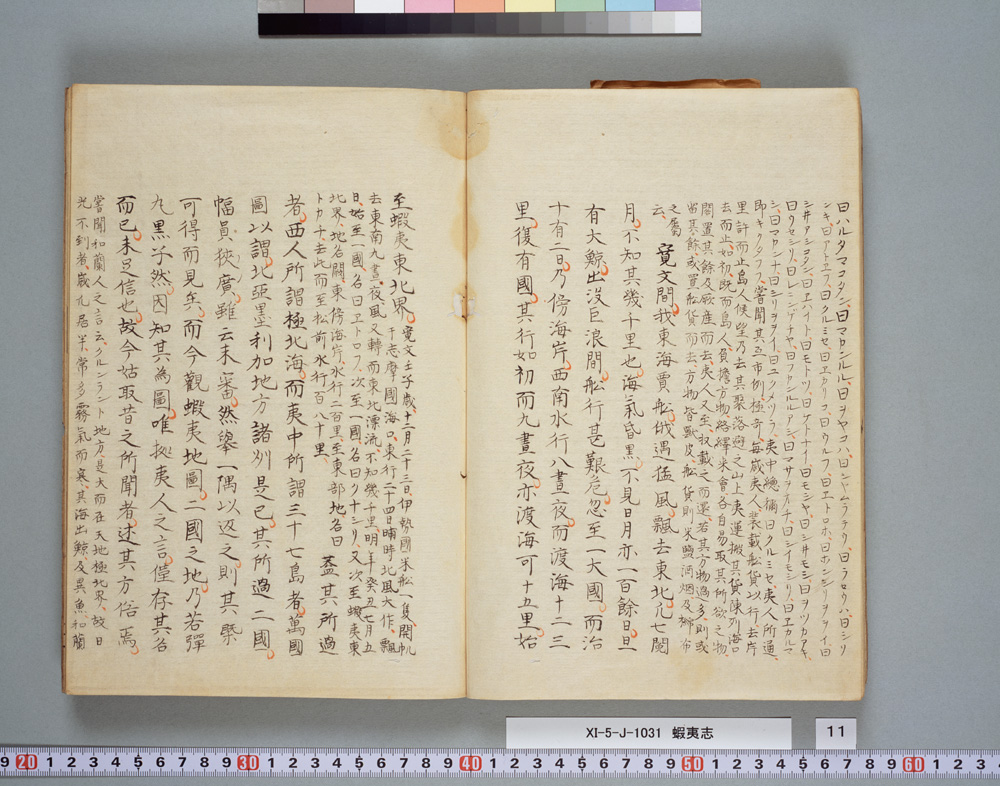 曰ハルタマコタン、曰マカンルル、曰ヲヤコハ、曰シヤームラチケ、曰ラセウハ、曰シリ
ンキ、曰アトエフ、曰クルミセ、曰エカリコ、曰ウルフ、曰エトロホ、曰ホンシリヲヲイ、曰
シ井ヲシヨコタン、曰エハイト、曰モトワ、曰ケトナイ、曰モシヤ、曰シ井モシリ、曰ヲツカアキ、
曰ウセシリ、曰レニンケチヤ、曰フカンルルアシ、曰マサヲチ、曰シイモシリ、曰エカルマ
シ、曰マカンナ、曰シリヲヲイ、曰ユクメツラ、夷中總稱曰クルミセ、夷人所通、
即キイタツフ、嘗聞其互市例、極奇、毎歳夷人裝載舩貨以行、去岸
里許而止、島人候望、乃去其聚落、避之山上、夷運搬其貨、陳列海口、
去而止如初、既而島人負擔方物、絡繹来會、各自易取其所欲之物、
閣置其餘及厥産而去、夷人又至、收載之而還、若其方物過多、則或
留其餘、或置舩貨而去、方物皆獸皮、舩貨則米鹽酒烟及綿布
之屬
云、寛文間、我東海賈舩、俄遇猛風、飄去東北、凡七閲
月、不知其幾千里也、海氣昏黒、不見日月、亦一百餘日、旦
有大鯨、出没巨浪間、舩行甚艱危、忽至一大國、而治
十有二日、乃傍海岸、西南水行八晝夜、而渡海十二三
里、復有國、其行如初、而九晝夜、亦渡海可十五里、始
至蝦夷東北界、寛文壬子歳十二月二十三日、伊勢國米舩一隻、開帆
于志摩國海口、東行二十四日晡時、北風大作、飄
去東南九晝夜、風又轉而東北漂流、不知幾千里、明年癸丑七月五
日、始至一國、名曰エトロフ、次至一國、名曰クナシリ、又次至蝦夷東
北界、地名閙東、傍海岸、水行二百里、至東部地名曰
トカチ、去此而至松前、水行百八十里、蓋其所過
者、西人所謂極北海、而夷中所謂三十七島者、萬國
圖以謂、北亞墨利加地方諸州是已、其所過二國、
幅員狹廣、雖云未審、然擧一隅以返之、則其槩
可得而見矣、而今觀蝦夷地圖、二國之地、乃若彈
九黒子然、因知其為圖、唯拠夷人之言、僅存其名
而已、未足信也、故今姑取昔之所聞者、述其方俗焉、
嘗聞和蘭人之言云、クルンラント地方、是大而在天地極北界、故日
光不到者、歳凡居半、常多霧氣而寒、其海出鯨、及異魚、和蘭
XI-5-J-1031 蝦夷志
11